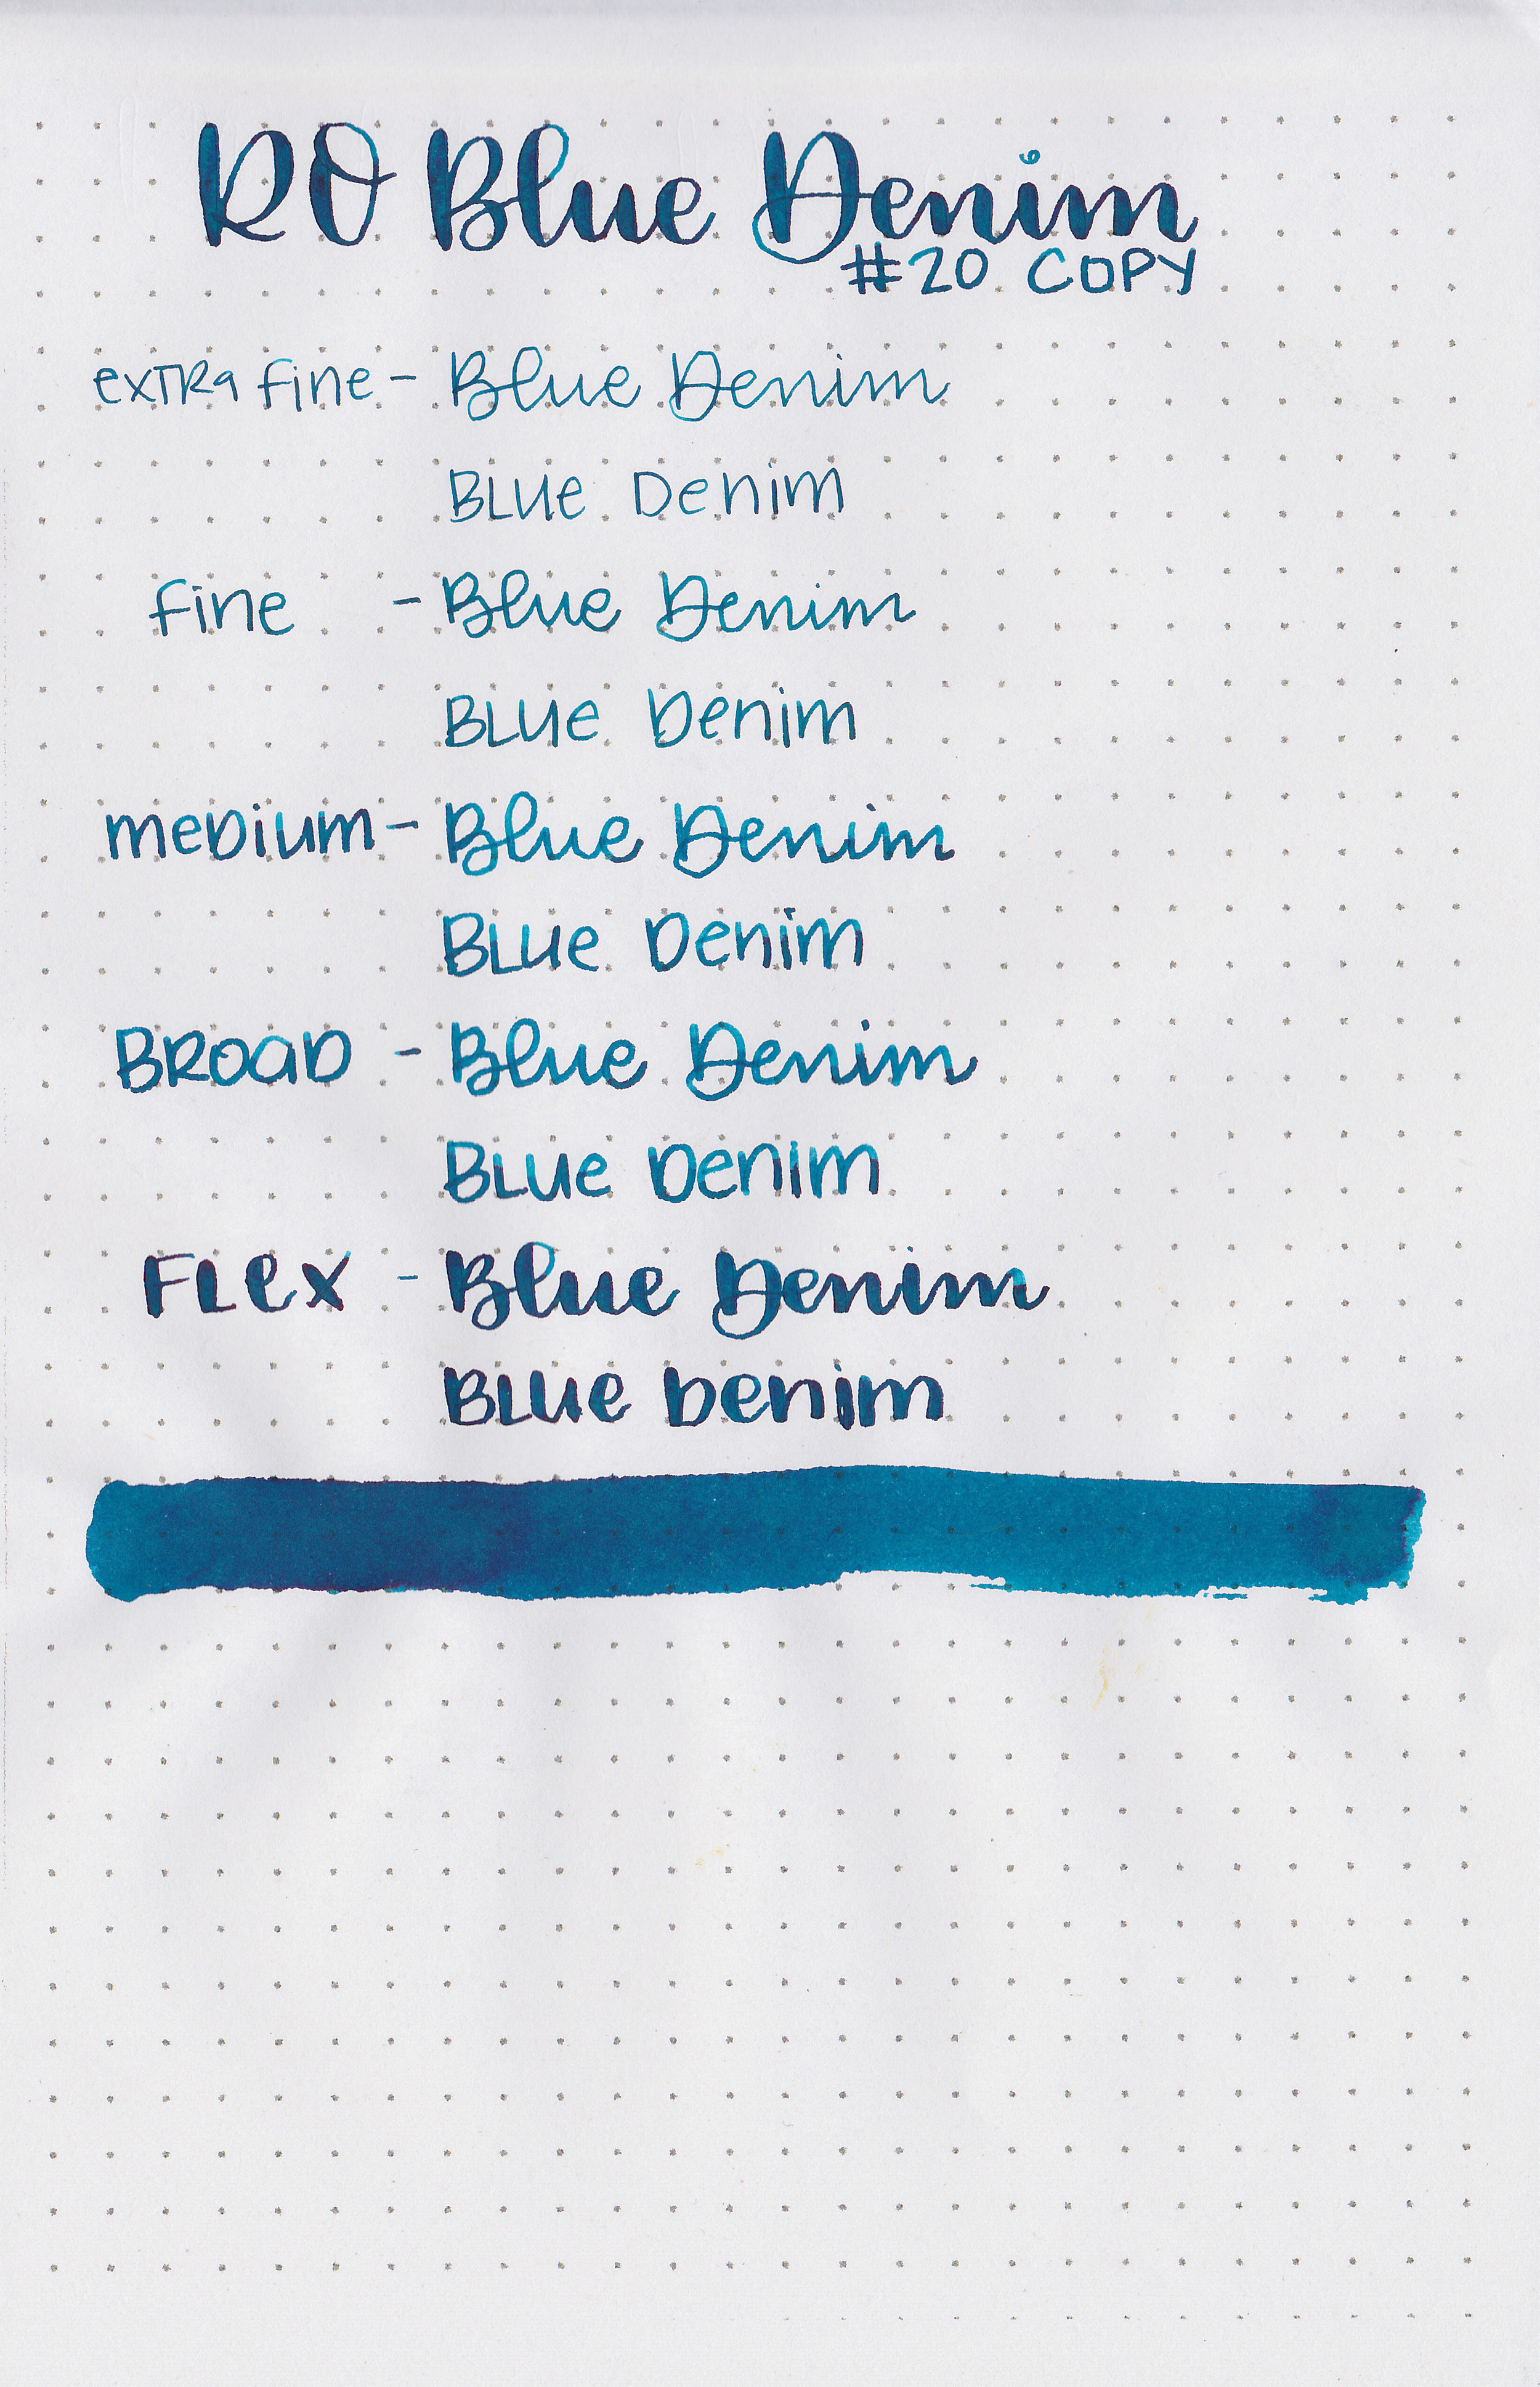 RO Blue Denim
#20 COPY
extra fine - Blue Denim
Blue Denim
fine - Blue Denim
Blue Denim
medium - Blue Denim
Blue Denim
Broad - Blue Denim
Blue Denim
Flex - Blue Denim
Blue Denim